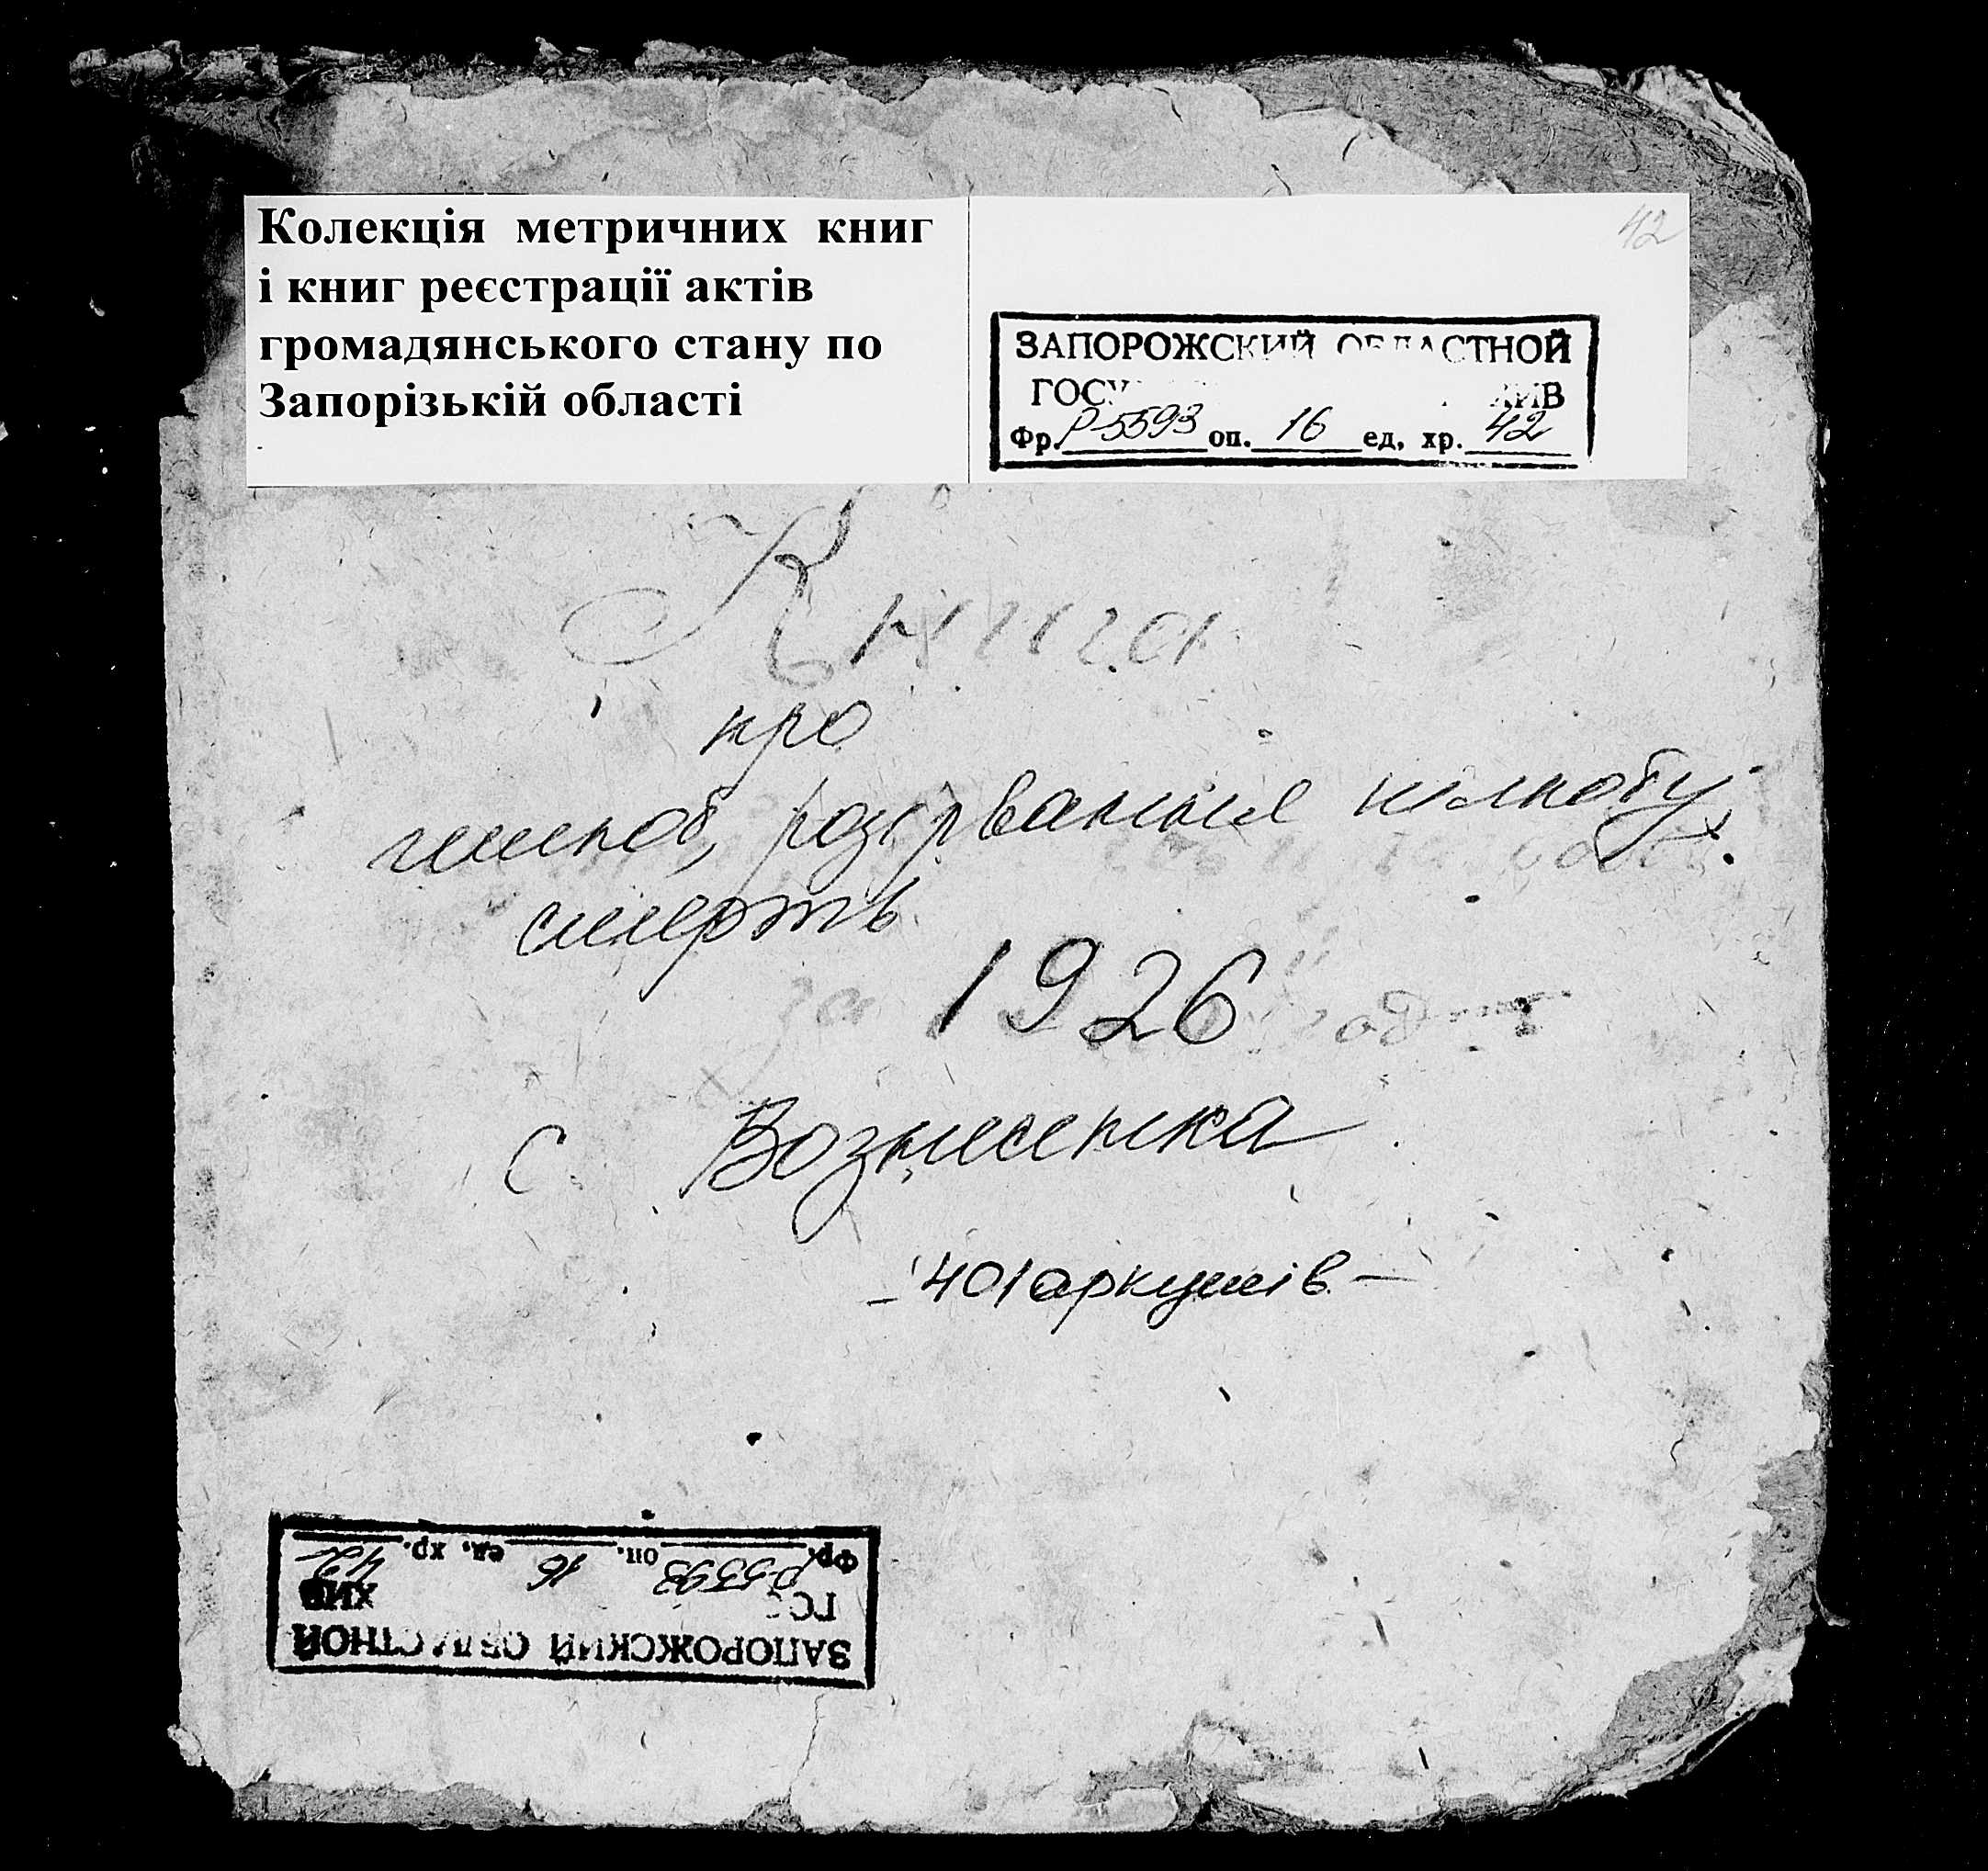 Колекція метричних книг
і книг реєстрації актів
громадянського стану по
Запорізькій області
42
ЗАПОРОЖСКИЙ ОБЛАСТНОЙ
ГОСУ ХИВ
Фр. Р-5593 оп. 16 ед. хр. 42
Книга
про
шлюб, розірвання шлюбу,
смерть
1926
с Вознесенка
- 401 аркушів -
Фр. Р-5593 оп. 16 ед. хр. 42
ГС ХИВ
ЗАПОРОЖСКИЙ ОБЛАСТНОЙ